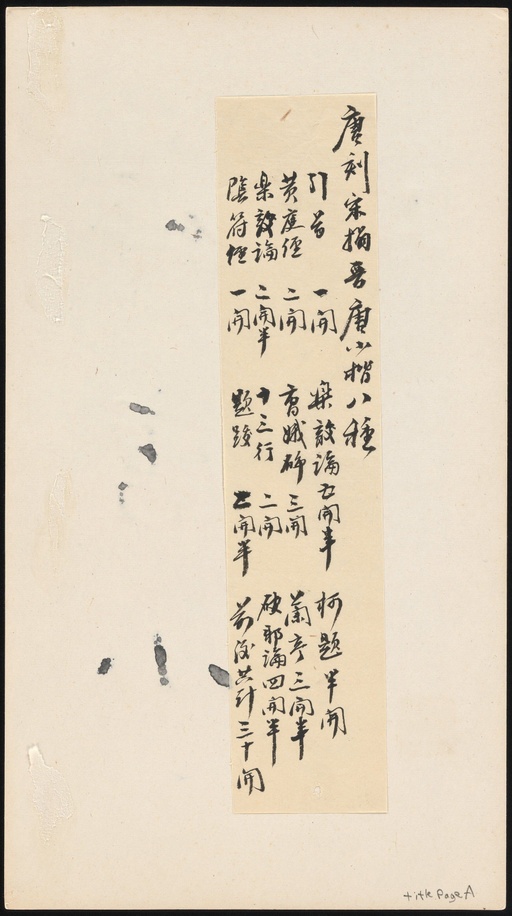 唐刻宋搨晉唐小楷八種
引首 一開 樂毅論五開半 柯題半開
黄庭經 二開 曹娥碑 三開 蘭亭三開半
樂毅論 二開半 十三行 二開 破邪論四開半
陰符經 一開 題跋 開半 前後共計三十開
title page A